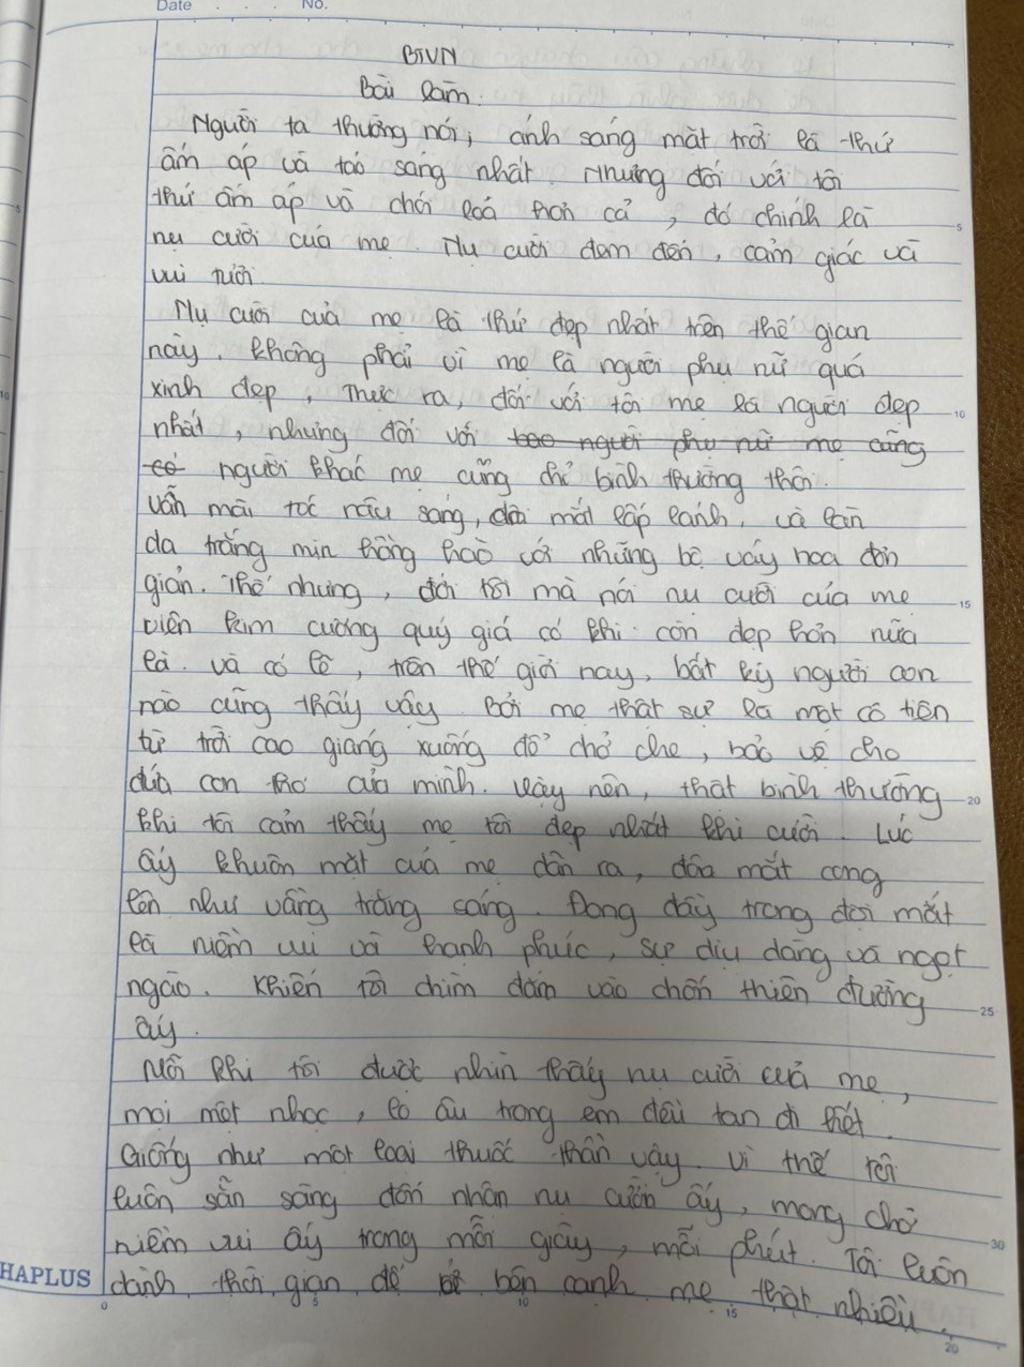 Date No.
BTVN
Bài làm:
Người ta thường nói, ánh sáng mặt trời là thứ
ấm áp và toả sáng nhất. Nhưng đối với tôi
thứ ấm áp và chói loá hơn cả, đó chính là
nụ cười của mẹ. Nụ cười đem đến, cảm giác và
vui tươi.
Nụ cười của mẹ là thứ đẹp nhất trên thế gian
này. Không phải vì mẹ là người phụ nữ quá
xinh đẹp, Thực ra, đối với tôi mẹ là người đẹp
nhất, nhưng đối với người phụ nữ mẹ cũng
có người khác mẹ cũng chỉ bình thường thôi.
vẫn mái tóc nâu sáng, đôi mắt lấp lánh, và làn
da trắng mịn hồng hào với những bộ váy hoa đơn
giản. Thế nhưng, đới tôi mà nói nụ cười của mẹ
viên kim cương quý giá có khi còn đẹp hơn nữa
là. và có lẽ, trên thế giới nay, bất kỳ người con
nào cũng thấy vậy. Bởi mẹ thật sự là một cô tiên
từ trời cao giáng xuống để chở che, bảo vệ cho
đứa con thơ của mình. Vậy nên, thật bình thường
khi tôi cảm thấy mẹ tôi đẹp nhất khi cười. Lúc
ấy khuôn mặt của mẹ dãn ra, đôi mắt cong
lên như vầng trăng sáng. Đong đầy trong đôi mắt
là niềm vui và hạnh phúc, sự dịu dàng và ngọt
ngào. Khiến tôi chìm đắm vào chốn thiên đường
ấy.
Mỗi khi tôi được nhìn thấy nụ cười của mẹ,
mọi mệt nhọc, lo âu trong em đều tan đi hết.
Giống như một loại thuốc thần vậy. vì thế tôi
luôn sẵn sàng đón nhận nụ cười ấy, mong chờ
niềm vui ấy trong mỗi giây, mỗi phút. Tôi luôn
dành thời gian để bên cạnh mẹ thật nhiều.
HAPLUS